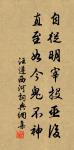 自從明宰投巫後
直至如今鬼不神
汪遵西河詞典佩集